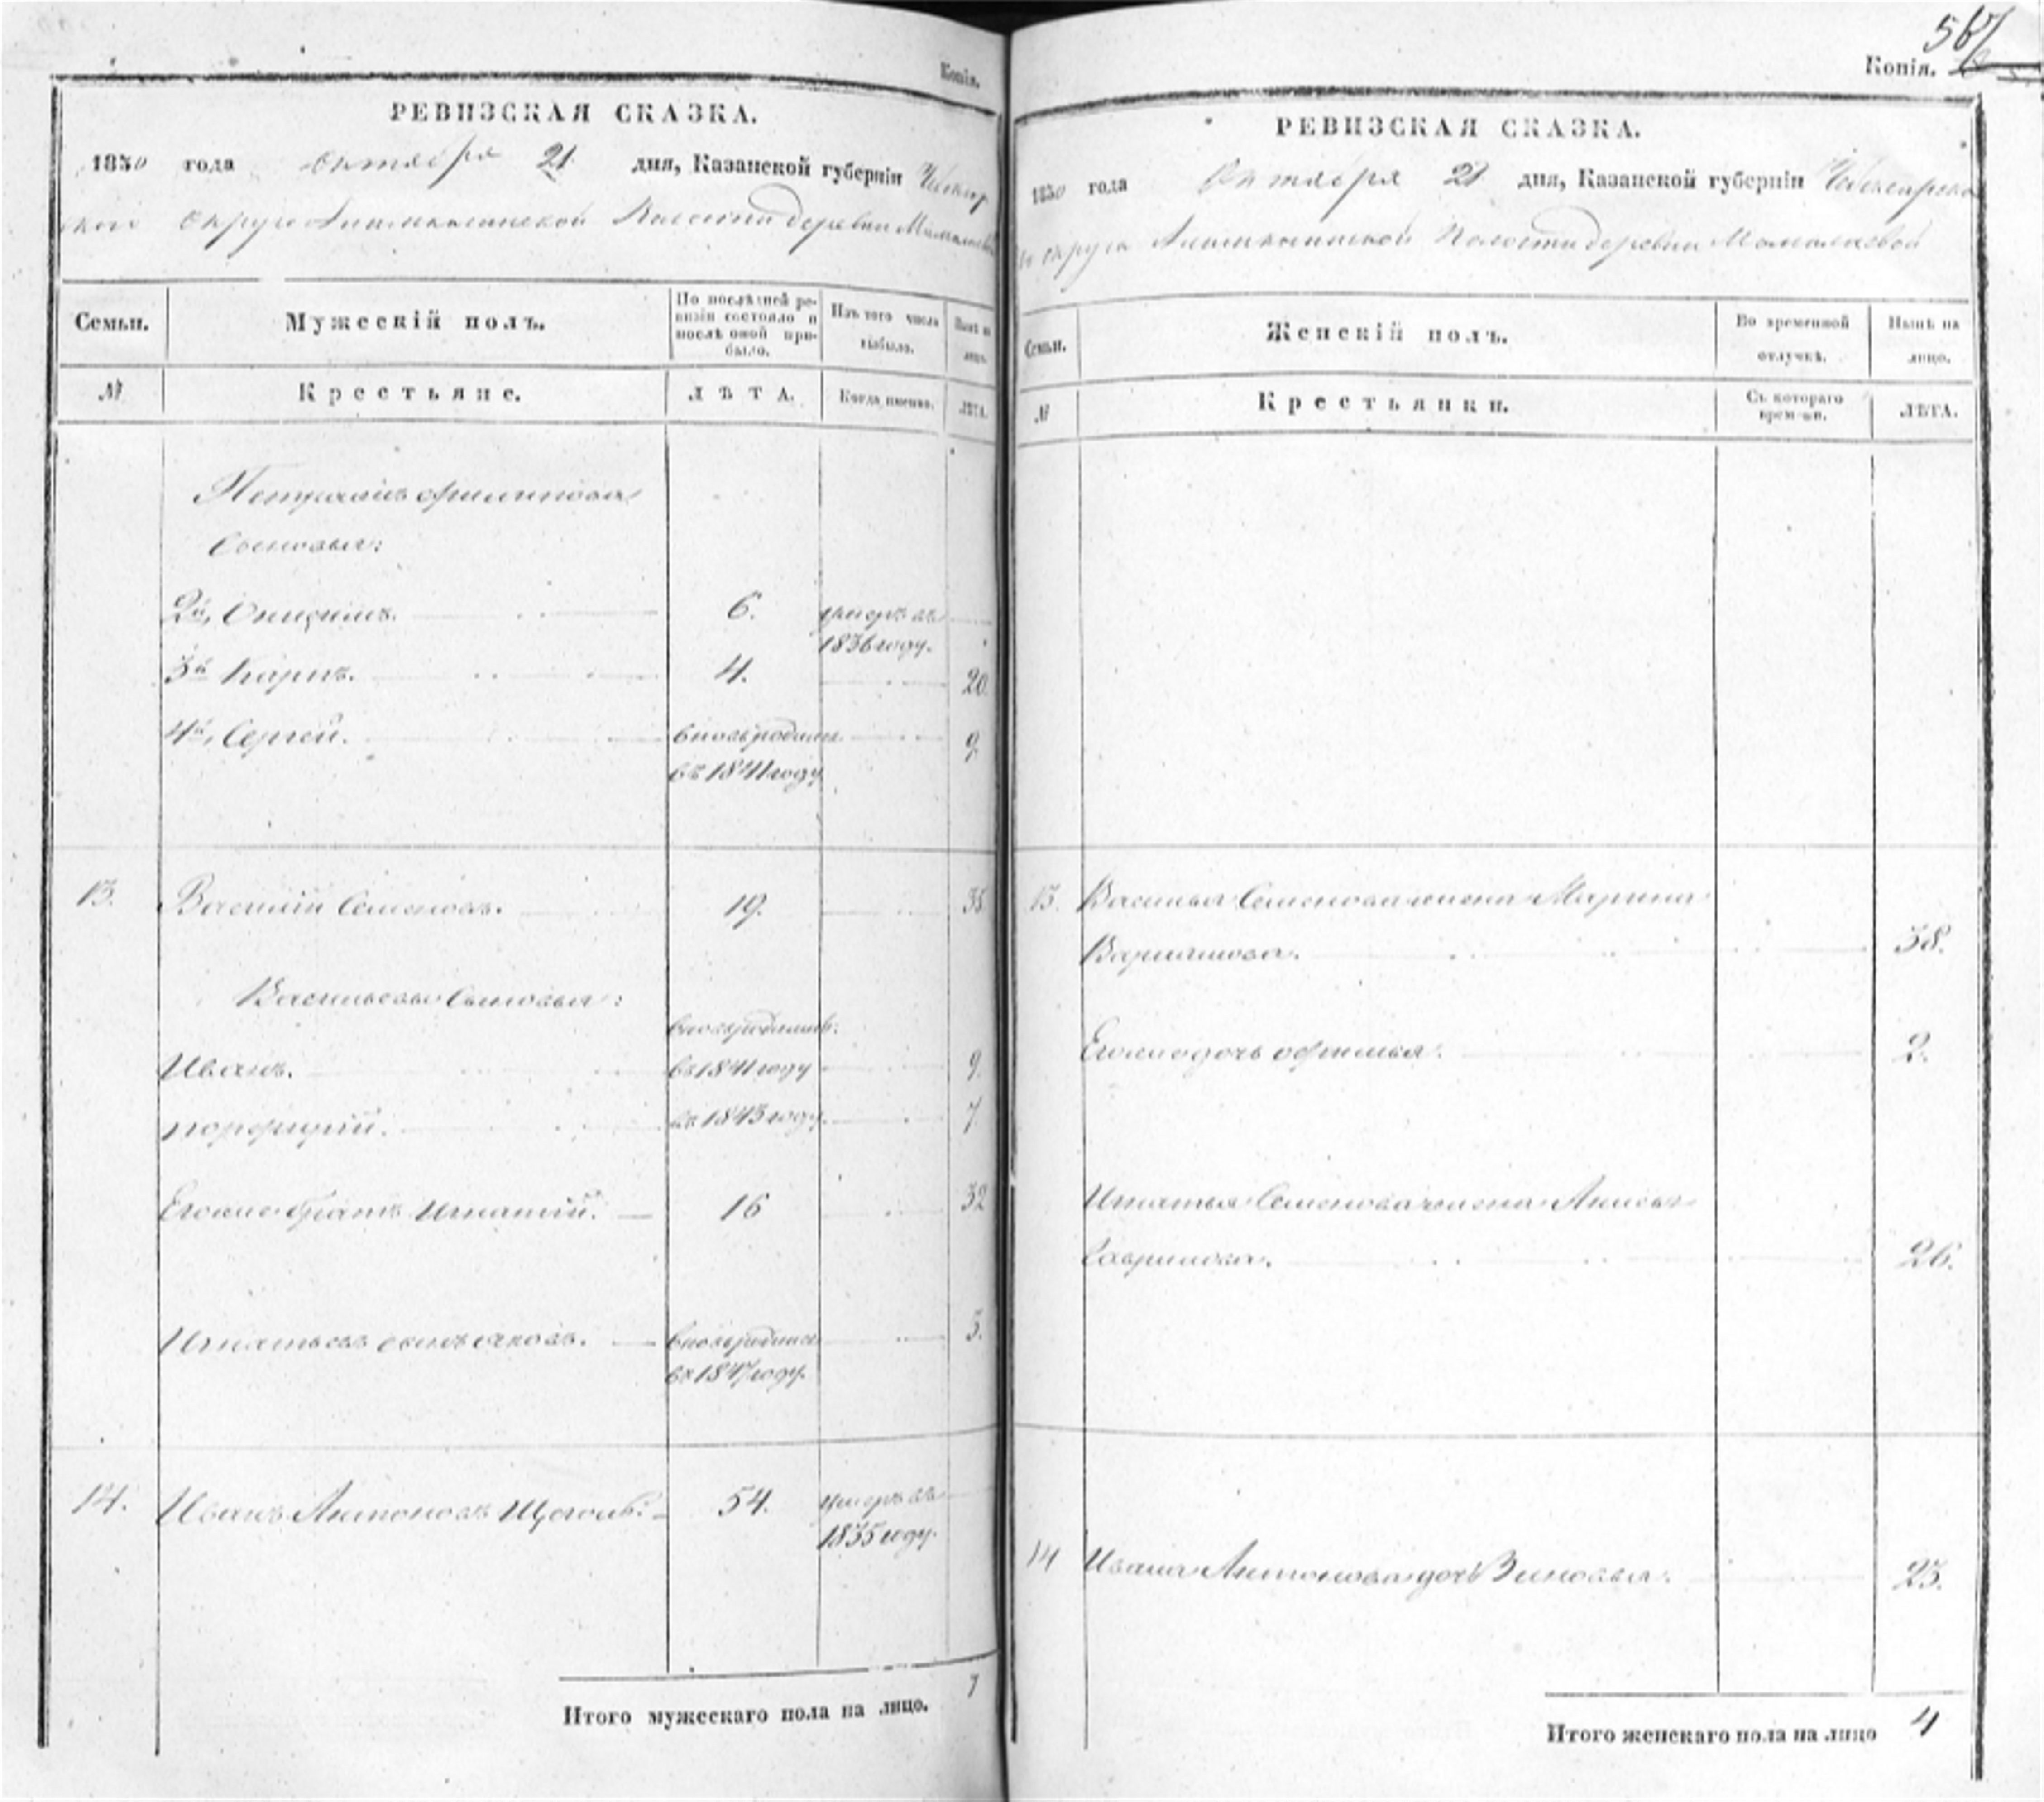 Копія.
РЕВИЗСКАЯ СКАЗКА.
1850 года Октября 21 дня, Казанской губерніи Чебоксар
ского Округа Волости деревни
Семьи.
Мужескій полъ.
По послѣдней ре-
визіи состояло и
послѣ оной при-
было.
Изъ того числа
выбыло.
Нынѣ на
лицо.
№
Крестьяне.
ЛѢТА.
Когда именно.
ЛѢТА.
Филипова
Сыновья:
2й, Онисимъ. 6. умеръ въ
1836 году.
3й Карпъ. 4. 20.
4й, Сергей. вновьродился 9.
въ 1841 году
13. Василій Семеновъ. 19. 35
Васильевы Сыновья:
вновьродились:
Иванъ. въ 1841 году 9.
порфирій. въ 1843 году. 7
Егоже братъ Игнатій. 16 32
Игнатьевъ сынъ яковъ. вновьродился 3.
въ 1847 году.
14. Иванъ Антоновъ Щеголь. 54. умеръ въ
1835 году.
Итого мужескаго пола на лицо. 7
567
Копія.
РЕВИЗСКАЯ СКАЗКА.
1850 года Октября 21 дня, Казанской губерніи Чебоксарско
го округа Волости деревни
Семьи.
Женскій полъ.
Во временной
отлучкѣ.
Нынѣ на
лицо.
№
Крестьянки.
Съ котораго
времени.
ЛѢТА.
13. Василья Семенова жена Марина
38.
Егоже дочь 2.
Игнатья Семенова жена
Гаврилова. 26.
14 Ивана Антонова дочь Зиновья. 23.
Итого женскаго пола на лицо 4